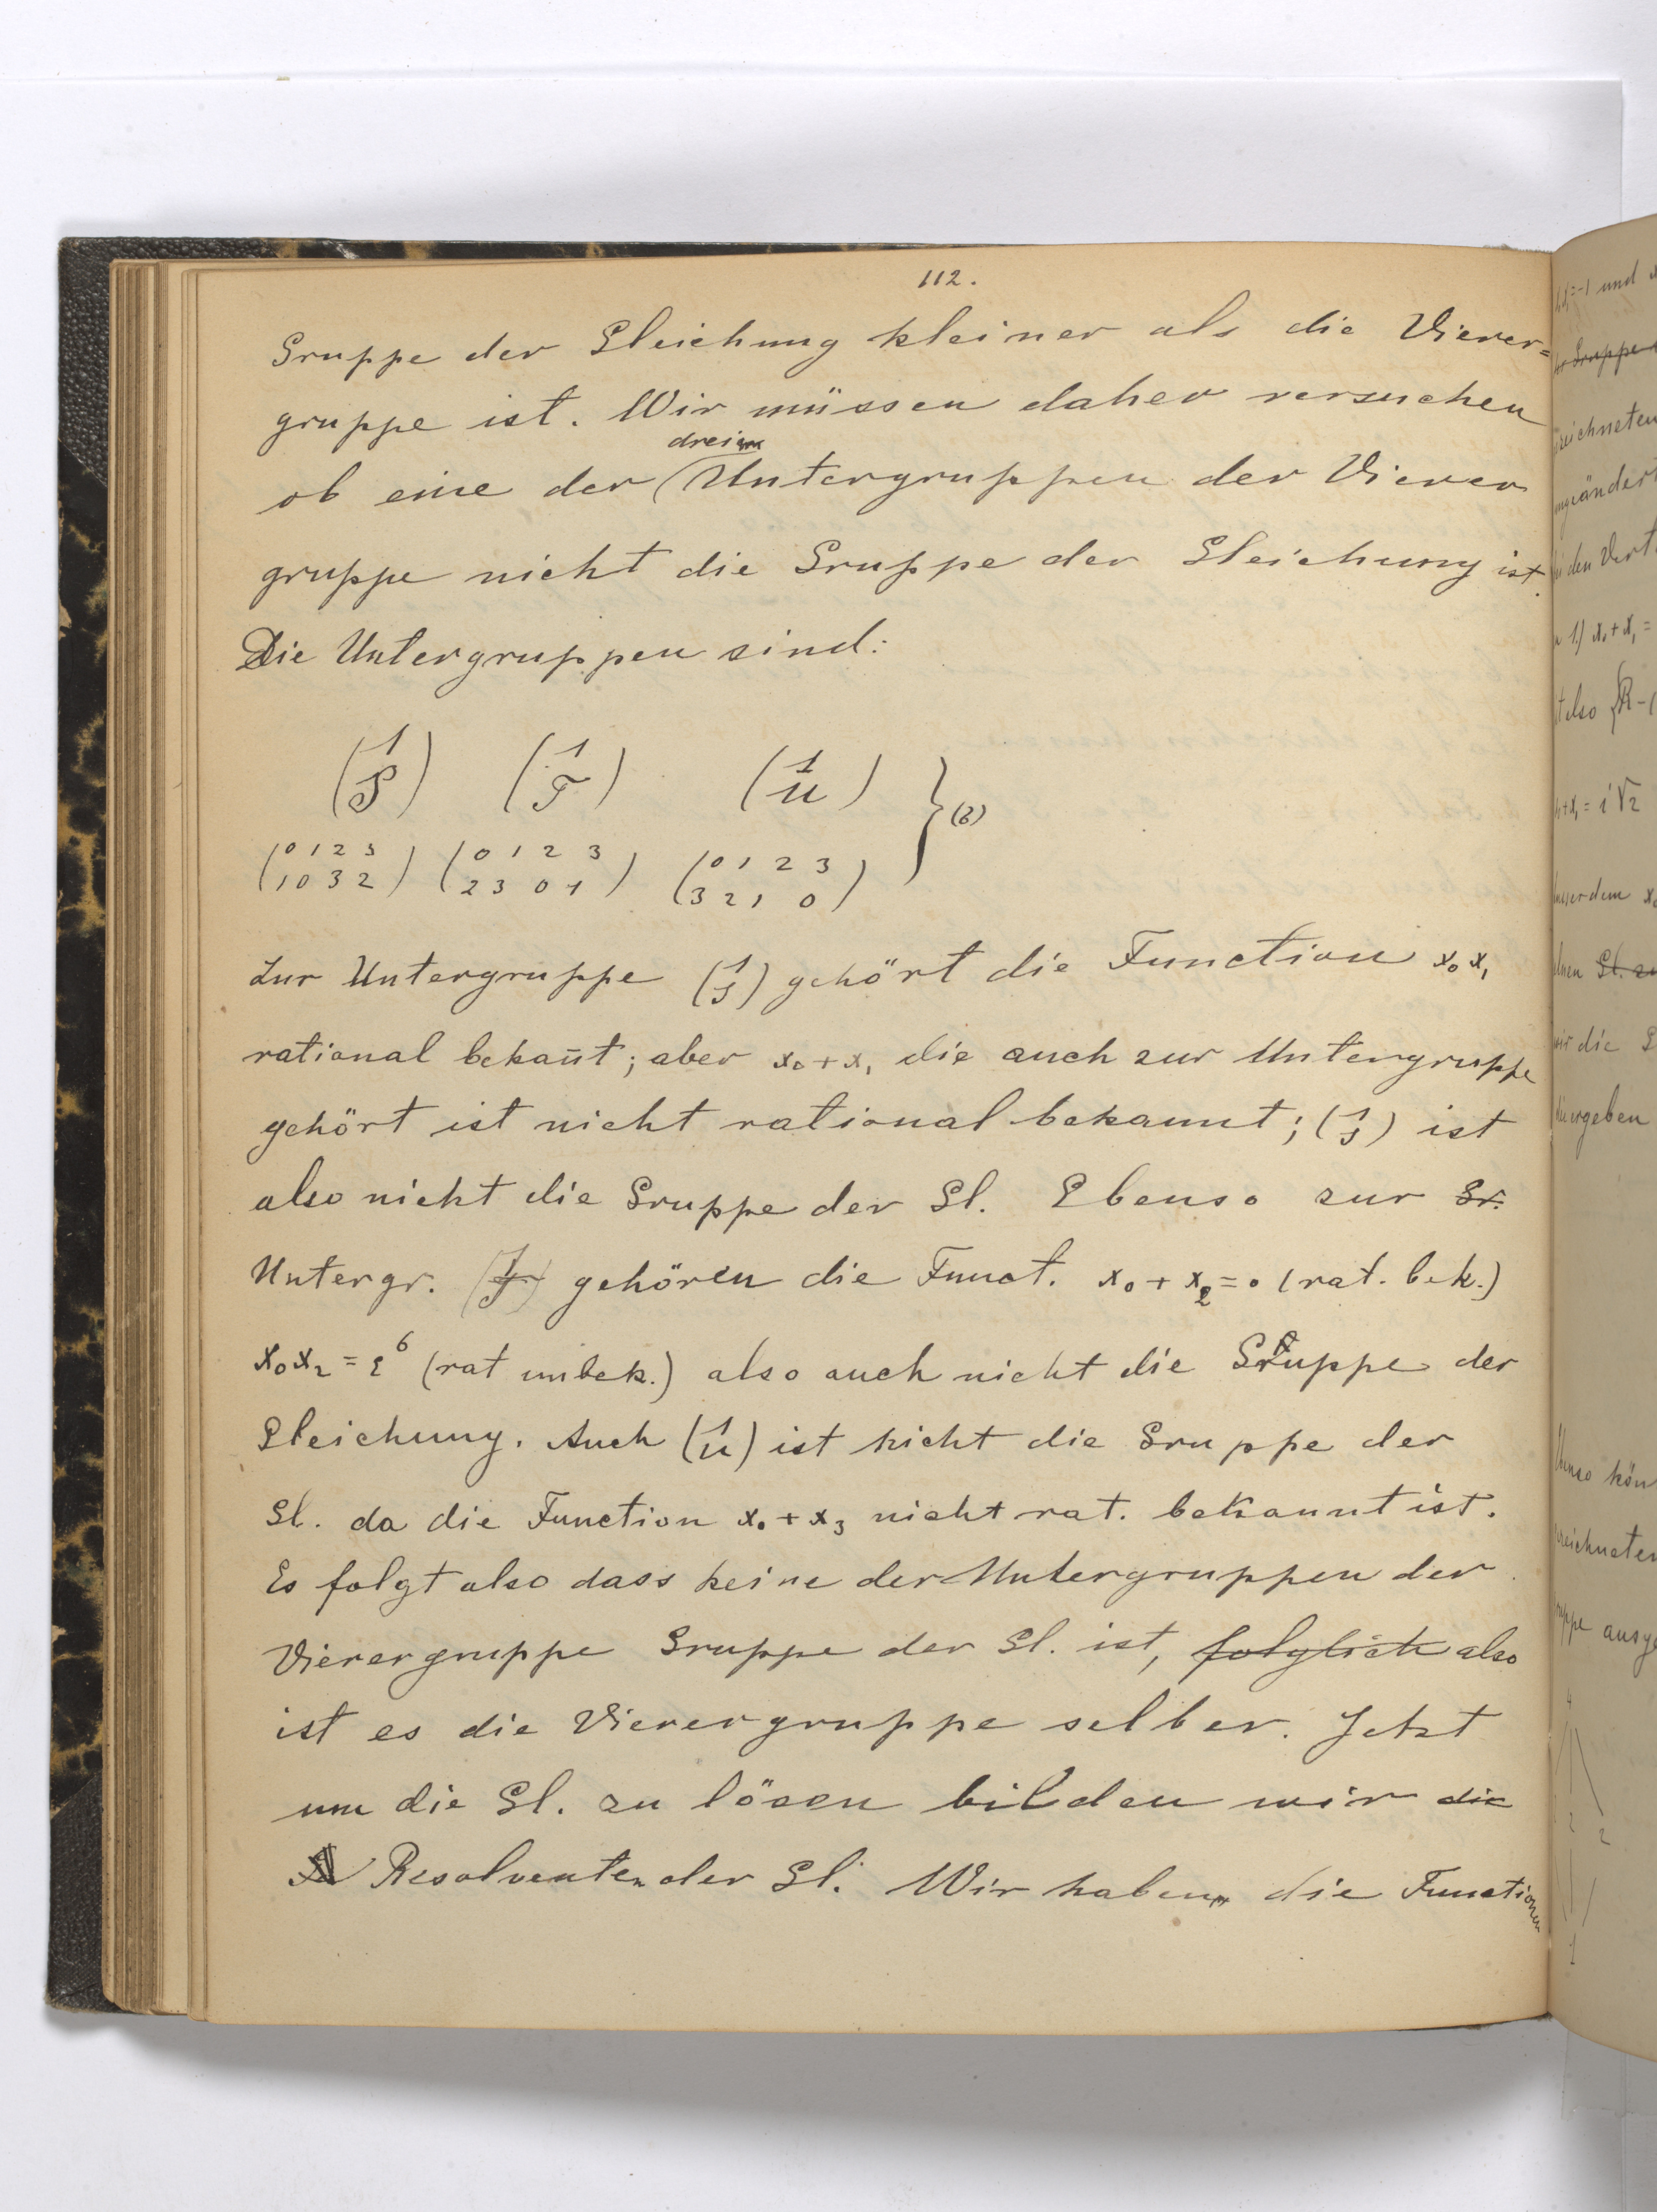 112.
Gruppe der Gleichung kleiner als die Vierer=
gruppe ist. Wir müssen daher versuchen
drei
ob eine der (Untergruppen der Vierer
gruppe nicht die Gruppe der Gleichung ist.
Die Untergruppen sind:
(1 S) (1 T) (1 U) } (6)
(0 1 2 3 / 1 0 3 2) (0 1 2 3 / 2 3 0 1) (0 1 2 3 / 3 2 1 0)
Zur Untergruppe (1 S) gehört die Function x₀x₁
rational bekan̄t; aber x₀+x₁ die auch zur Untergruppe
gehört ist nicht rational bekannt; (1 S) ist
also nicht die Gruppe der Gl. Ebenso zur Gr.
Untergr. (1 T) gehören die Funct. x₀+x₂=0 (rat. bek.)
x₀x₂=ε⁶ (rat unbek.) also auch nicht die Gruppe der
Gleichung. Auch (1 U) ist nicht die Gruppe der
Gl. da die Function x₀+x₃ nicht rat. bekannt ist.
Es folgt also dass keine der Untergruppen der
Vierergruppe Gruppe der Gl. ist, folglich also
ist es die Vierergruppe selber. Jetzt
um die Gl. zu lösen bilden wir die
Resolventen der Gl. Wir haben die Functionen
und
Gruppe
zeichneten
ungeändert
den Vert
1) x₀+x₁=
also
x₀+x₁=i√2
ausserdem
Gl. zu
wir die
ergeben
Ebenso kön
zeichneten
ausge
4
2 2
1